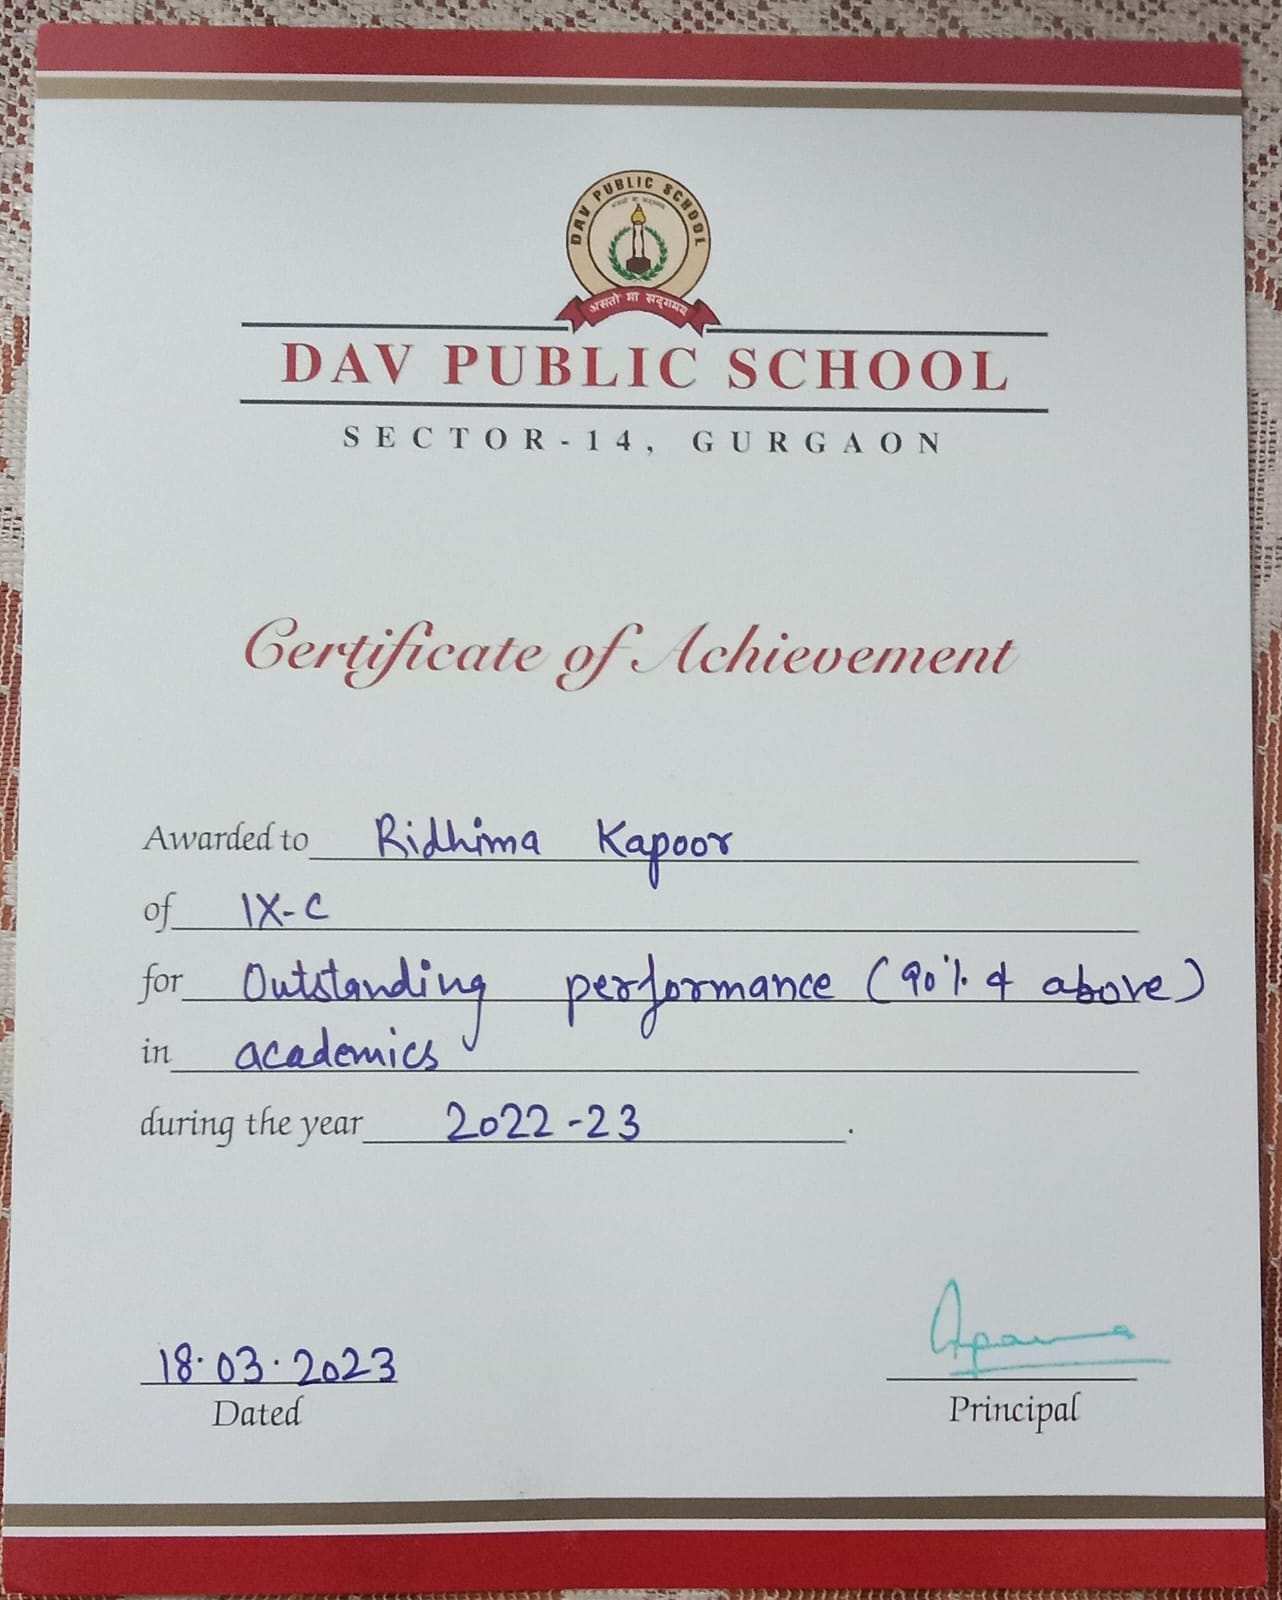 DAV PUBLIC SCHOOL
असतो मा सद्गमय
DAV PUBLIC SCHOOL
SECTOR-14, GURGAON
Certificate of Achievement
Awarded to Ridhima Kapoor
of IX-C
for Outstanding performance (90% & above)
in academics
during the year 2022-23.
18.03.2023
Dated
Principal